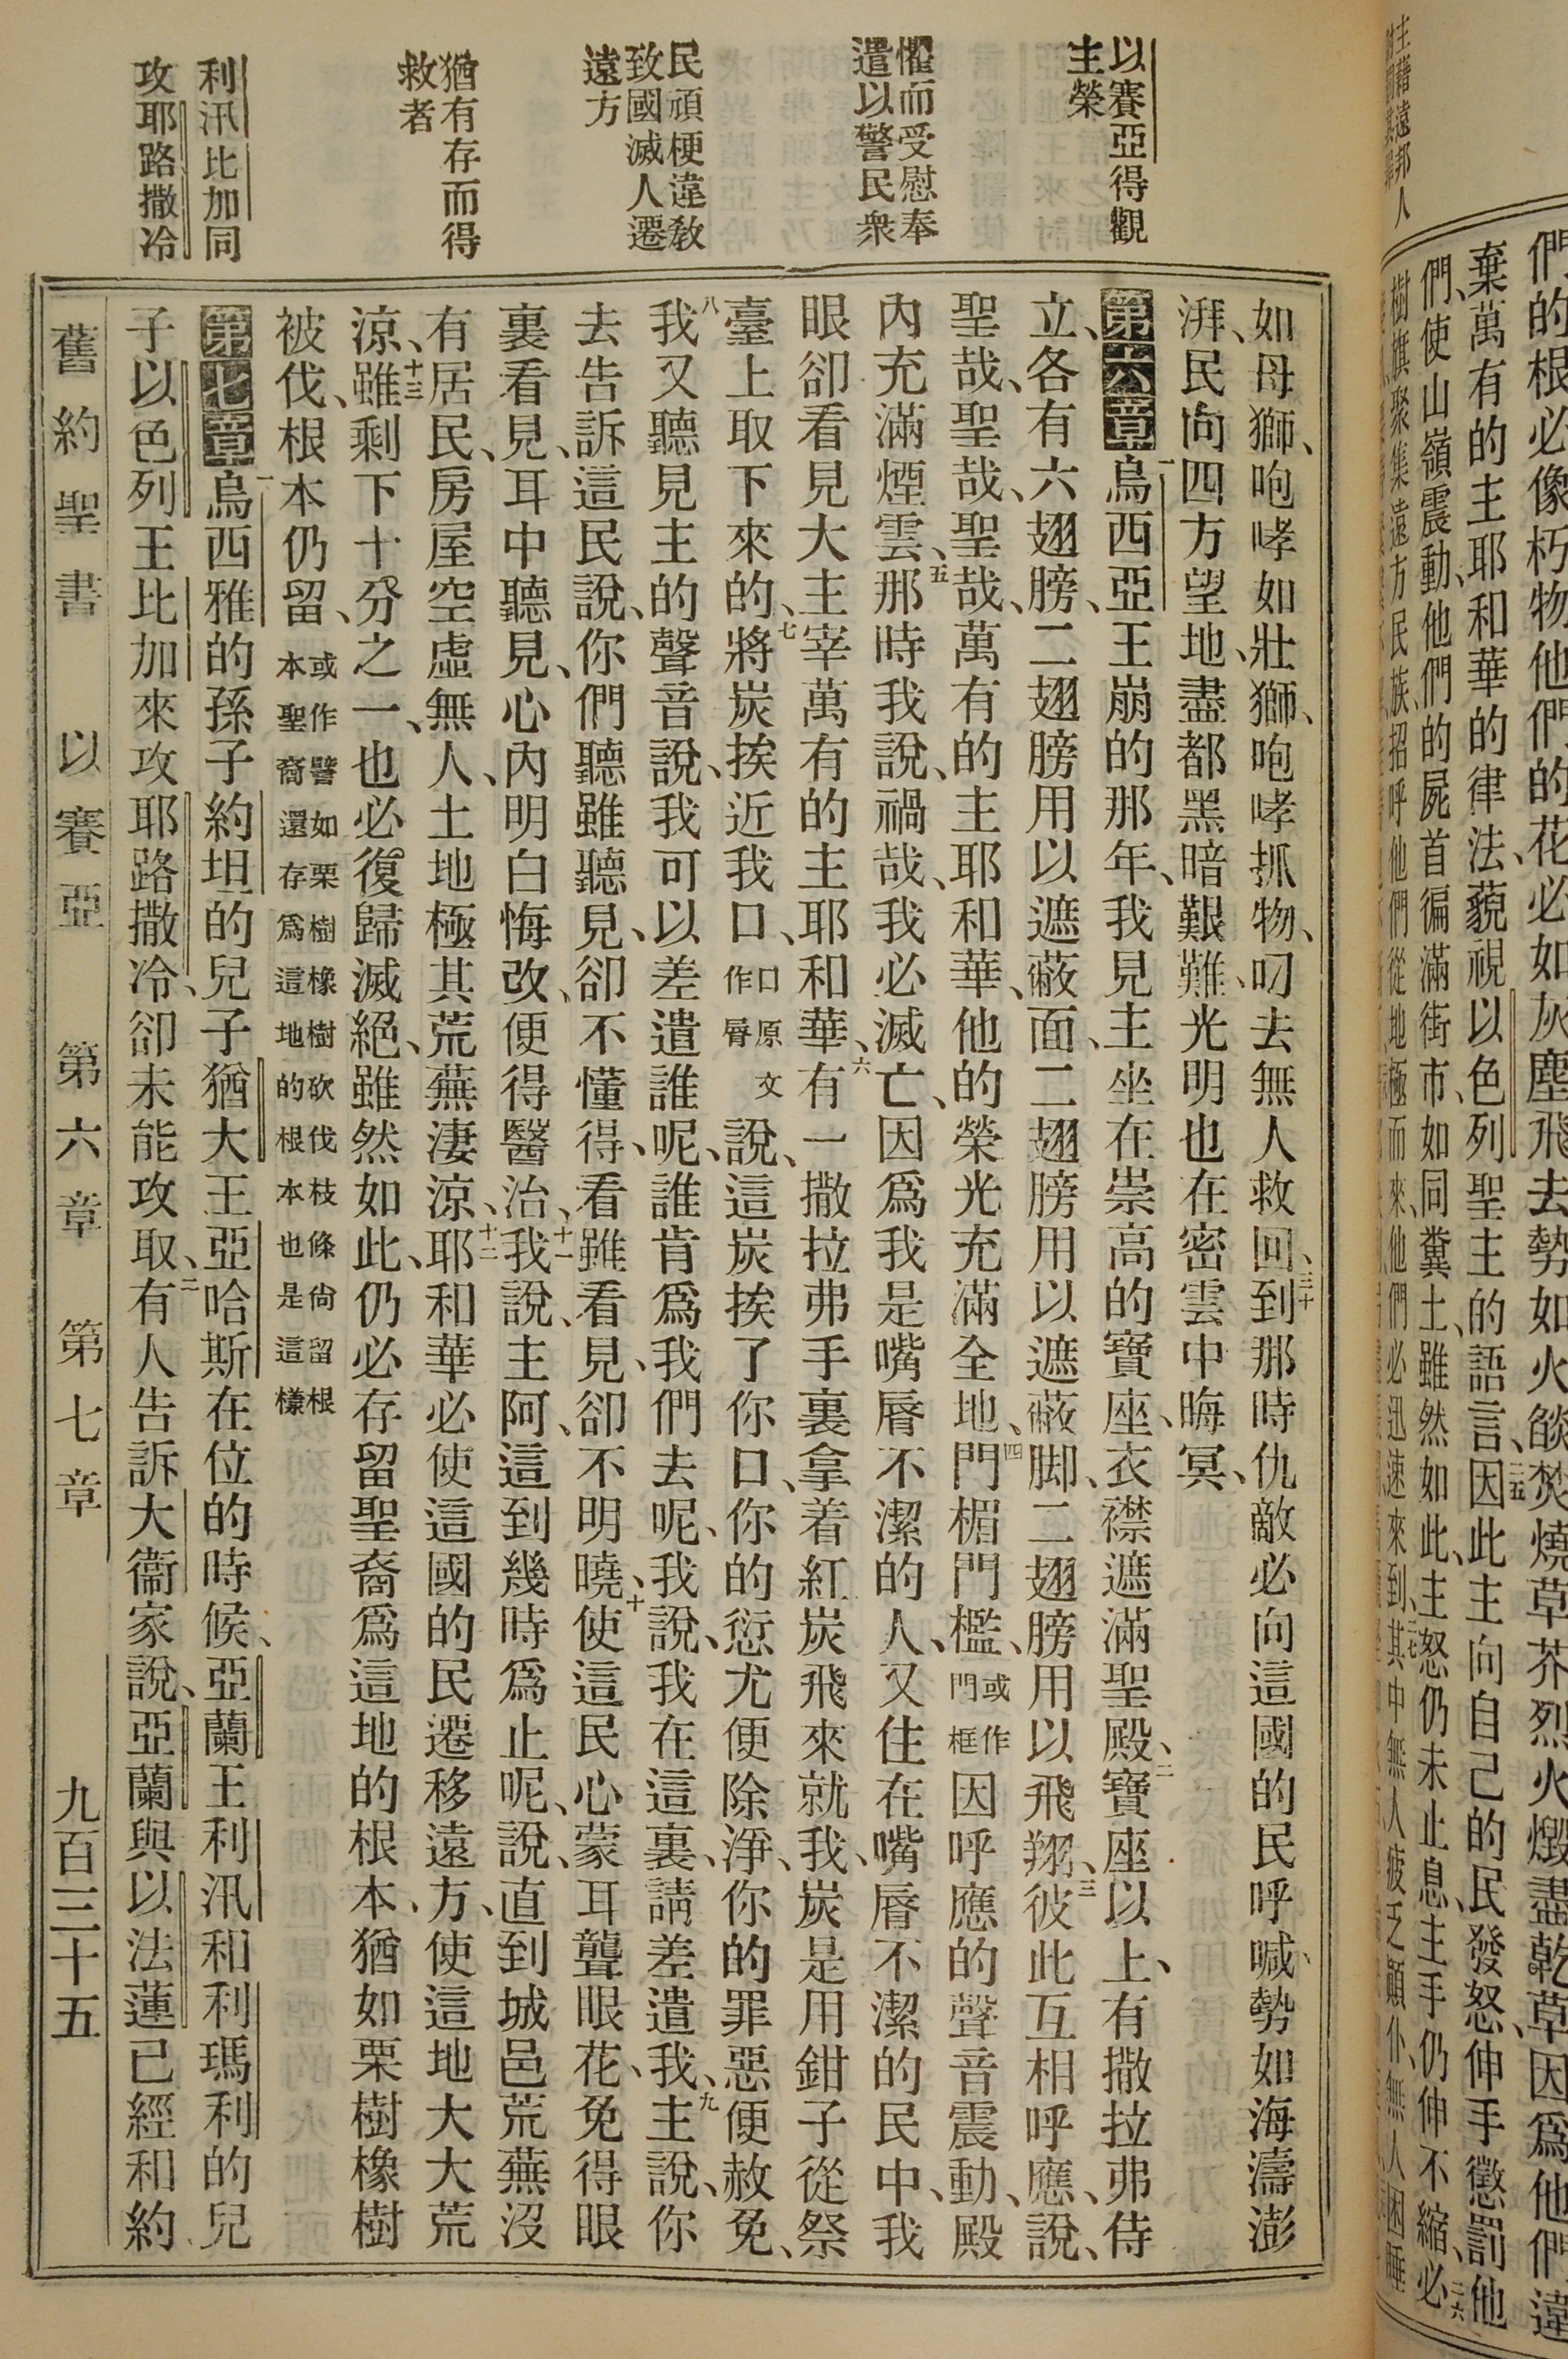 們的根必像朽物他們的花必如灰塵飛去勢如火燄焚燒草芥烈火燬盡乾草因爲他們違
棄萬有的主耶和華的律法、藐視以色列聖主的語言、二五因此主向自己的民發怒、伸手懲罰他
們、使山嶺震動、他們的屍首徧滿街市、如同糞土、雖然如此、主怒仍未止息、主手仍伸不縮、二六必
樹旗聚集遠方民族、招呼他們從地極而來、他們必迅速來到、二七其中無人疲乏顚仆、無人困睡
主藉遠邦人
以賽亞得觀
主榮
懼而受慰奉
遣以警民衆
民頑梗違敎
致國滅人遷
遠方
猶有存而得
救者
利汛比加同
攻耶路撒冷
如母獅、咆哮如壯獅、咆哮抓物、叼去無人救回、三十到那時仇敵必向這國的民呼喊、勢如海濤澎
湃、民向四方望地、盡都黑暗艱難、光明也在密雲中晦冥、
第六章一烏西亞王崩的那年、我見主坐在崇高的寶座、衣襟遮滿聖殿、二寶座以上、有撒拉弗侍
立、各有六翅膀、二翅膀用以遮蔽面、二翅膀用以遮蔽脚、二翅膀用以飛翔、三彼此互相呼應、說、
聖哉、聖哉、聖哉、萬有的主耶和華、他的榮光充滿全地、四門楣門檻、或作門框因呼應的聲音震動、殿
內充滿煙雲、五那時我說、禍哉、我必滅亡、因爲我是嘴脣不潔的人、又住在嘴脣不潔的民中、我
眼卻看見大主宰萬有的主耶和華、六有一撒拉弗手裏拿着紅炭飛來就我、炭是用鉗子從祭
臺上取下來的、七將炭挨近我口、口原文作脣說、這炭挨了你口、你的愆尤便除淨、你的罪惡便赦免、
八我又聽見主的聲音說、我可以差遣誰呢、誰肯爲我們去呢、我說、我在這裏、請差遣我、九主說、你
去告訴這民說、你們聽雖聽見、卻不懂得、看雖看見、卻不明曉、十使這民心蒙耳聾眼花、免得眼
裏看見、耳中聽見、心內明白悔改、便得醫治、十一我說、主阿、這到幾時爲止呢、說、直到城邑荒蕪沒
有居民、房屋空虛無人、土地極其荒蕪淒涼、十二耶和華必使這國的民遷移遠方、使這地大大荒
涼、十三雖剩下十分之一、也必復歸滅絕、雖然如此、仍必存留聖裔爲這地的根本、猶如栗樹橡樹
被伐、根本仍留、或作譬如栗樹橡樹砍伐枝條尙留根本聖裔還存爲這地的根本也是這樣
第七章一烏西雅的孫子約坦的兒子猶大王亞哈斯在位的時候、亞蘭王利汛和利瑪利的兒
子以色列王比加來攻耶路撒冷、卻未能攻取、二有人告訴大衞家說、亞蘭與以法蓮已經和約
舊約聖書　以賽亞　第六章　第七章　九百三十五